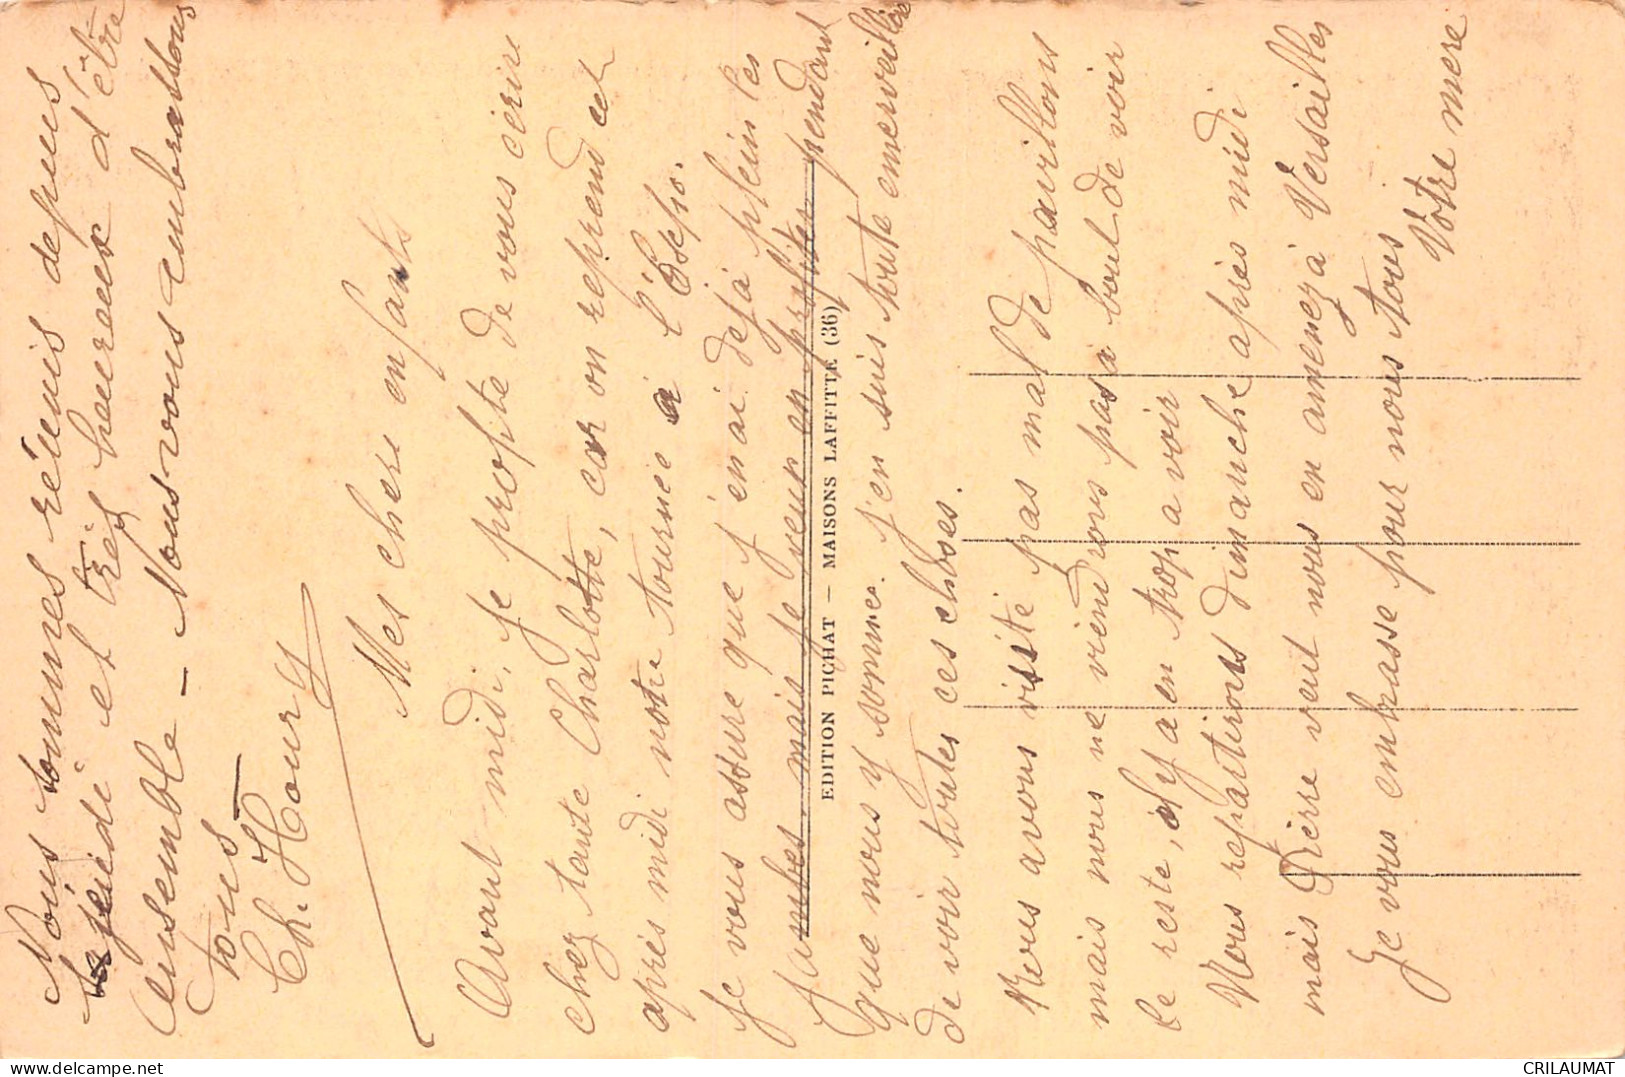 Nous sommes réunis depuis
jeudi et très heureux d'être
ensemble - Nous vous embrassons
tous
Ch. Houry
Mes chers enfants
Avant midi, je profite de vous écrire
chez tante Charlotte, car on reprend cet
après midi notre tournée à l'Expo.
Je vous assure que j'en ai déjà plein les
jambes, mais je veux en profiter pendant
que nous y sommes. J'en suis toute émerveillée
de voir toutes ces choses.
Nous avons visité pas mal de pavillons
mais nous ne viendrons pas à bout de voir
le reste, il y a en trop a voir
Nous repartirons dimanche après midi
mais Pierre veut nous en amenez à Versailles
Je vous embrasse pour nous tous
Votre mère
EDITION PICHAT — MAISONS LAFFITTE (36)
CRILAUMAT